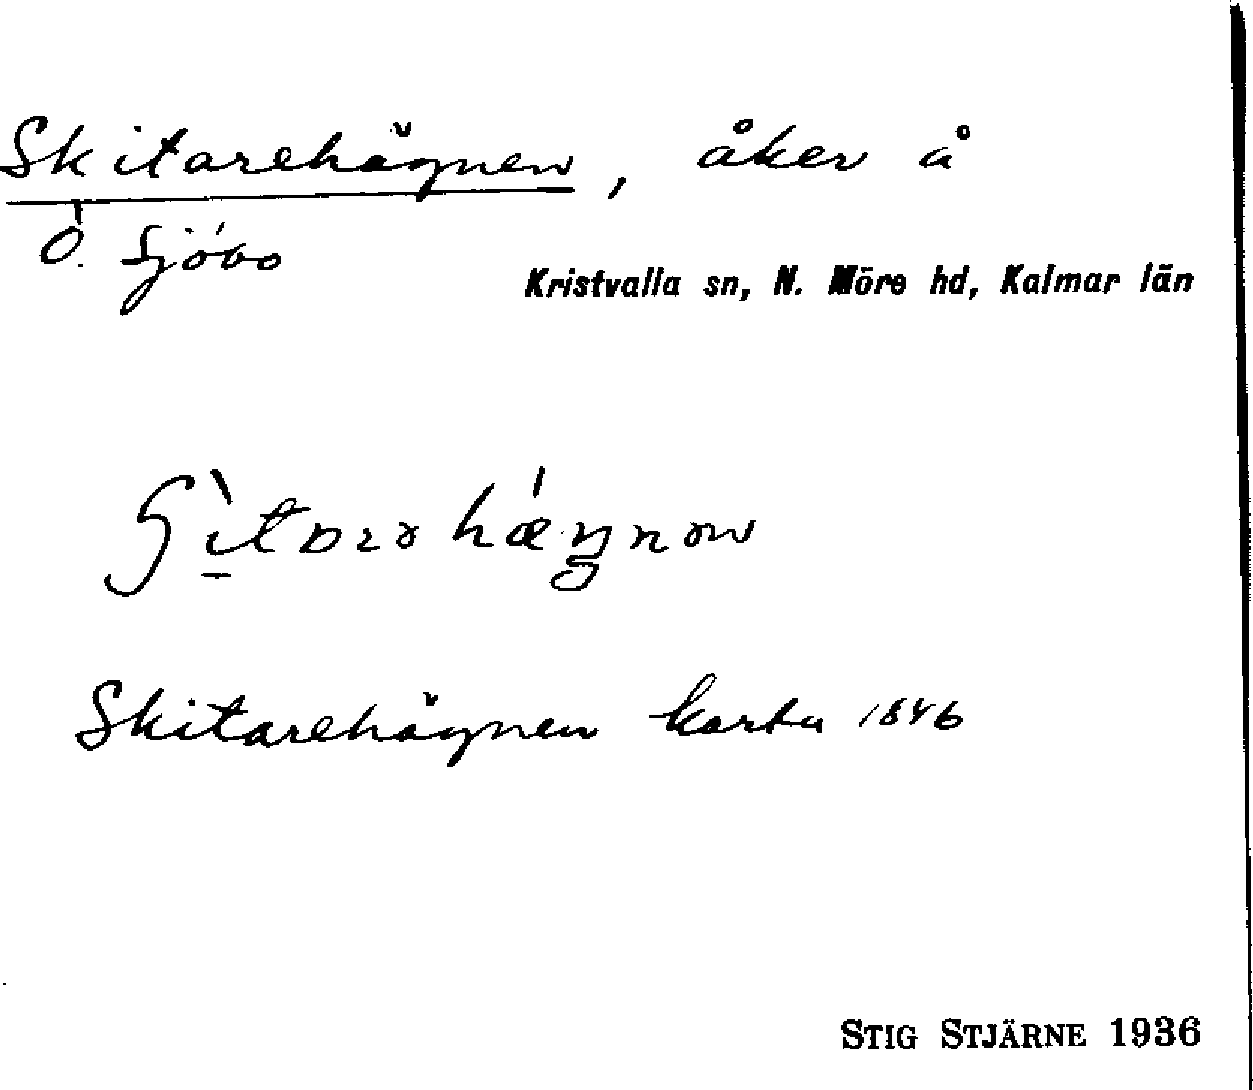 Skitarehägnen, åker å
Ö. Sjöbo
Kristvalla sn, N. Möre hd, Kalmar län
Skitarehägnen karta 1846
STIG STJÄRNE 1936